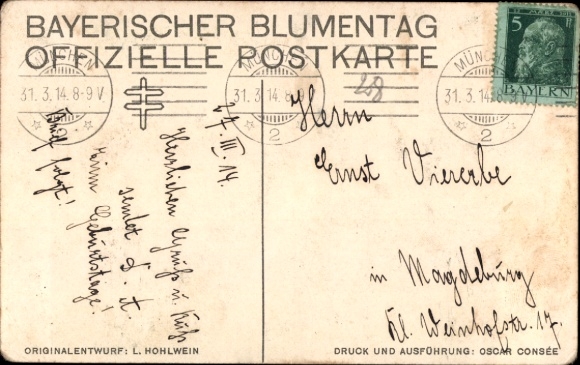 BAYERISCHER BLUMENTAG
OFFIZIELLE POSTKARTE
MÜNCHEN
31. 3. 14. 8-9 V
2
MÜNCHEN
31. 3. 14. 8-9 V
2
MÜNCHEN
31. 3. 14. 8-9 V
2
5
BAYERN
28
27. III. 14.
Herzlichen Gruß u. Kuß
sendet
zum Geburtstage!
Brief folgt!
Herrn
Ernst Viererbe
in Magdeburg
Kl. Weinhofstr. 17.
ORIGINALENTWURF: L. HOHLWEIN
DRUCK UND AUSFÜHRUNG: OSCAR CONSÉE